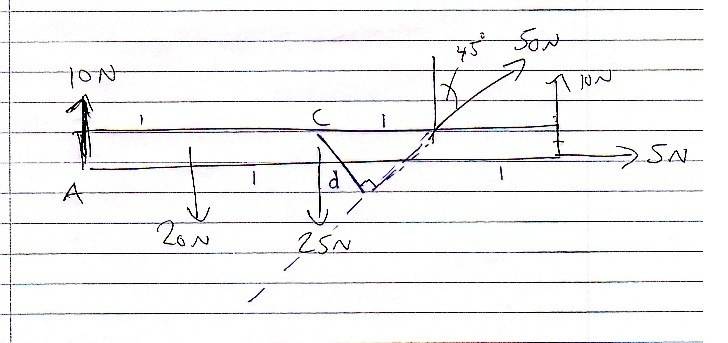 45° 50N
10N 10N
1 C 1
A 1 d 1 5N
20N 25N